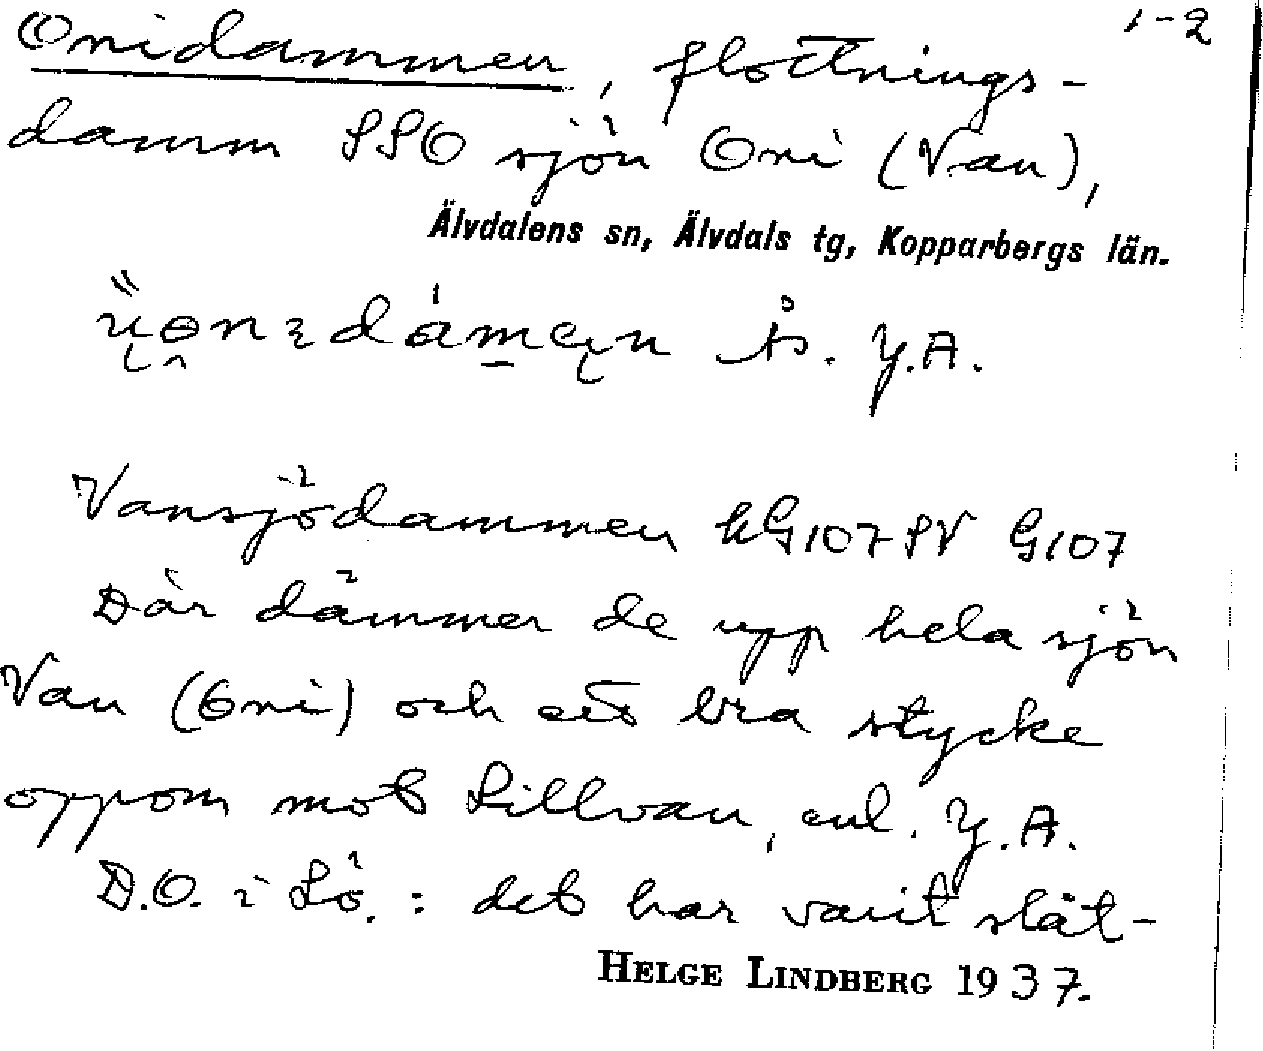 1-2
Onidammen, flottnings-
damm SSO sjön Oni (Van),
Älvdalens sn, Älvdals tg, Kopparbergs län.
Y.A.
Vansjödammen kG107SV G107
Där dämmer de upp hela sjön
Van (Oni) och ett bra stycke
oppom mot Lillvan, enl. Y.A.
D.O. i Lö.: det har varit slåt-
HELGE LINDBERG 1937.